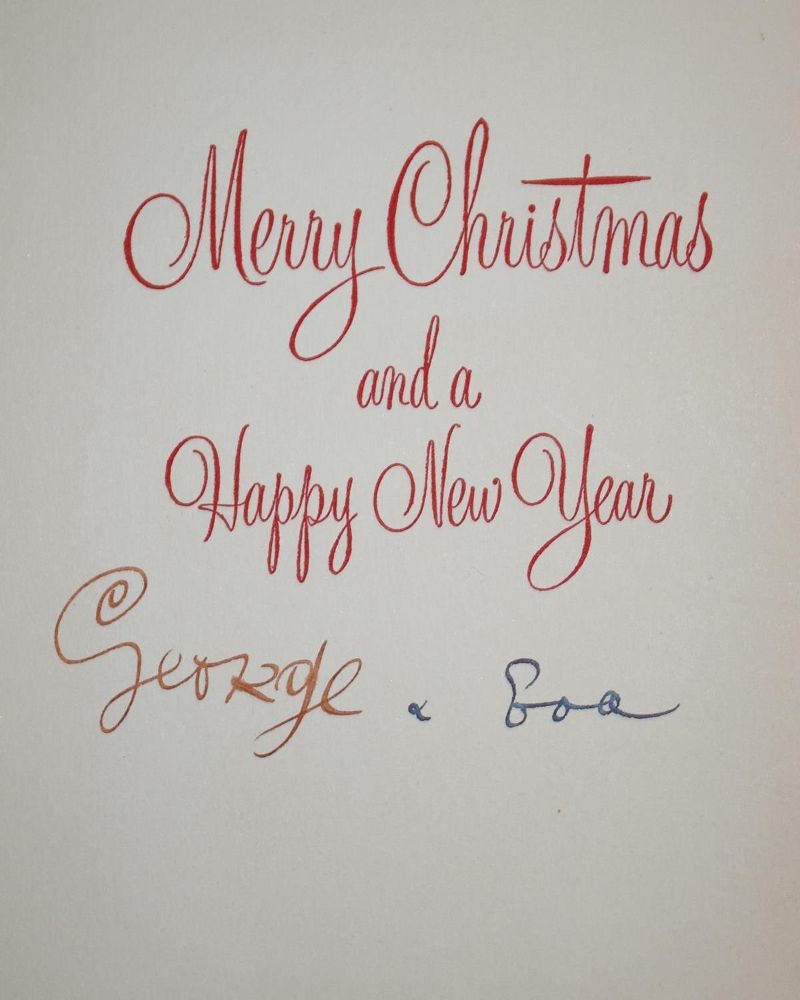 Merry Christmas
and a
Happy New Year
George & Eva